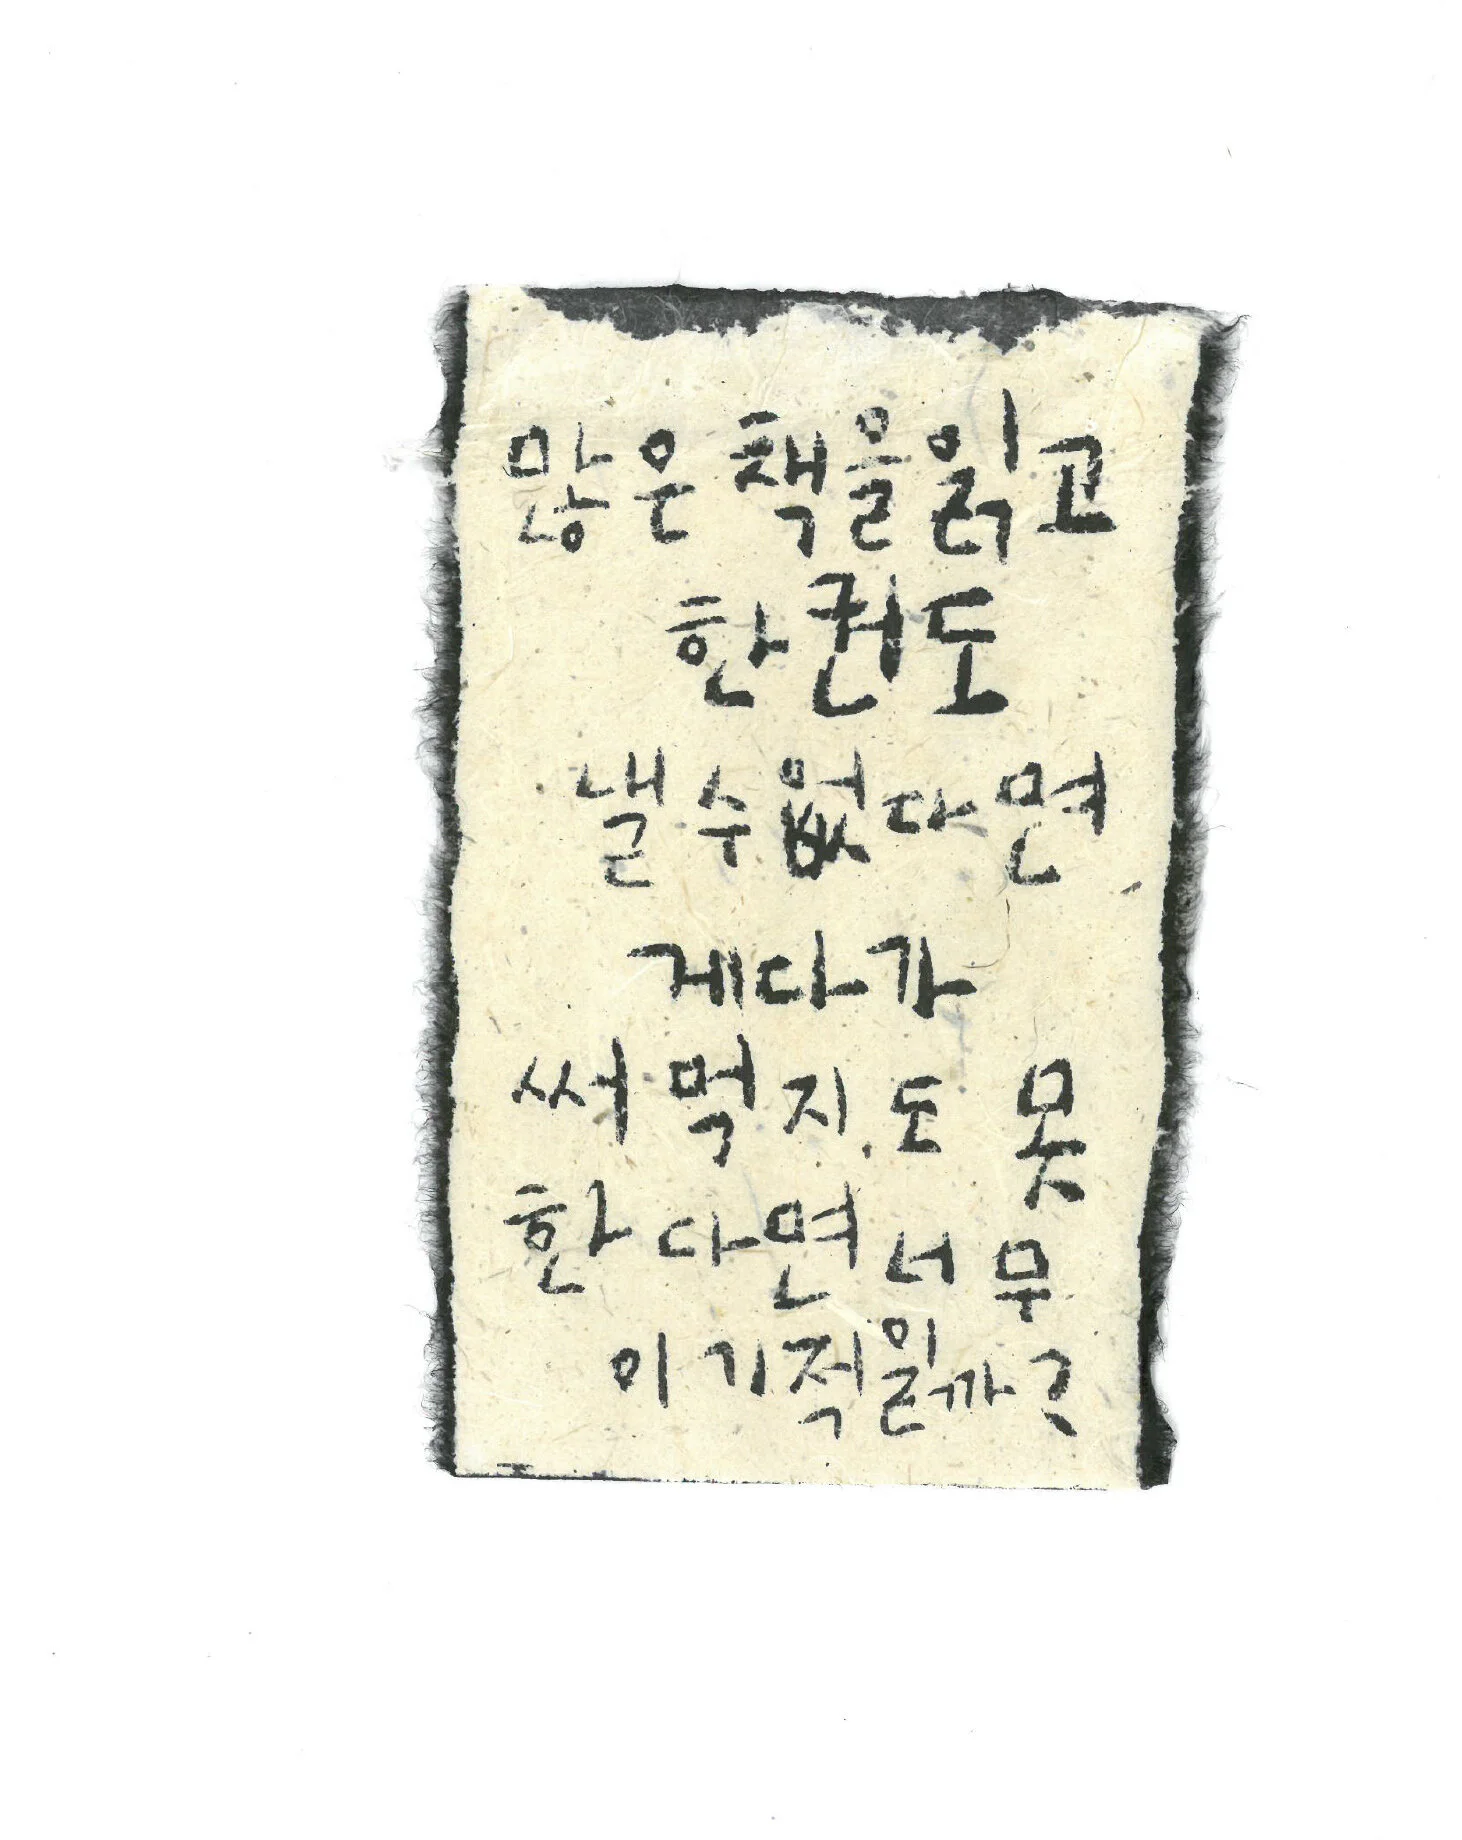 많은 책을 읽고
한 권도
낼 수 없다면
게다가
써 먹지도 못
한다면 너무
이기적일까?